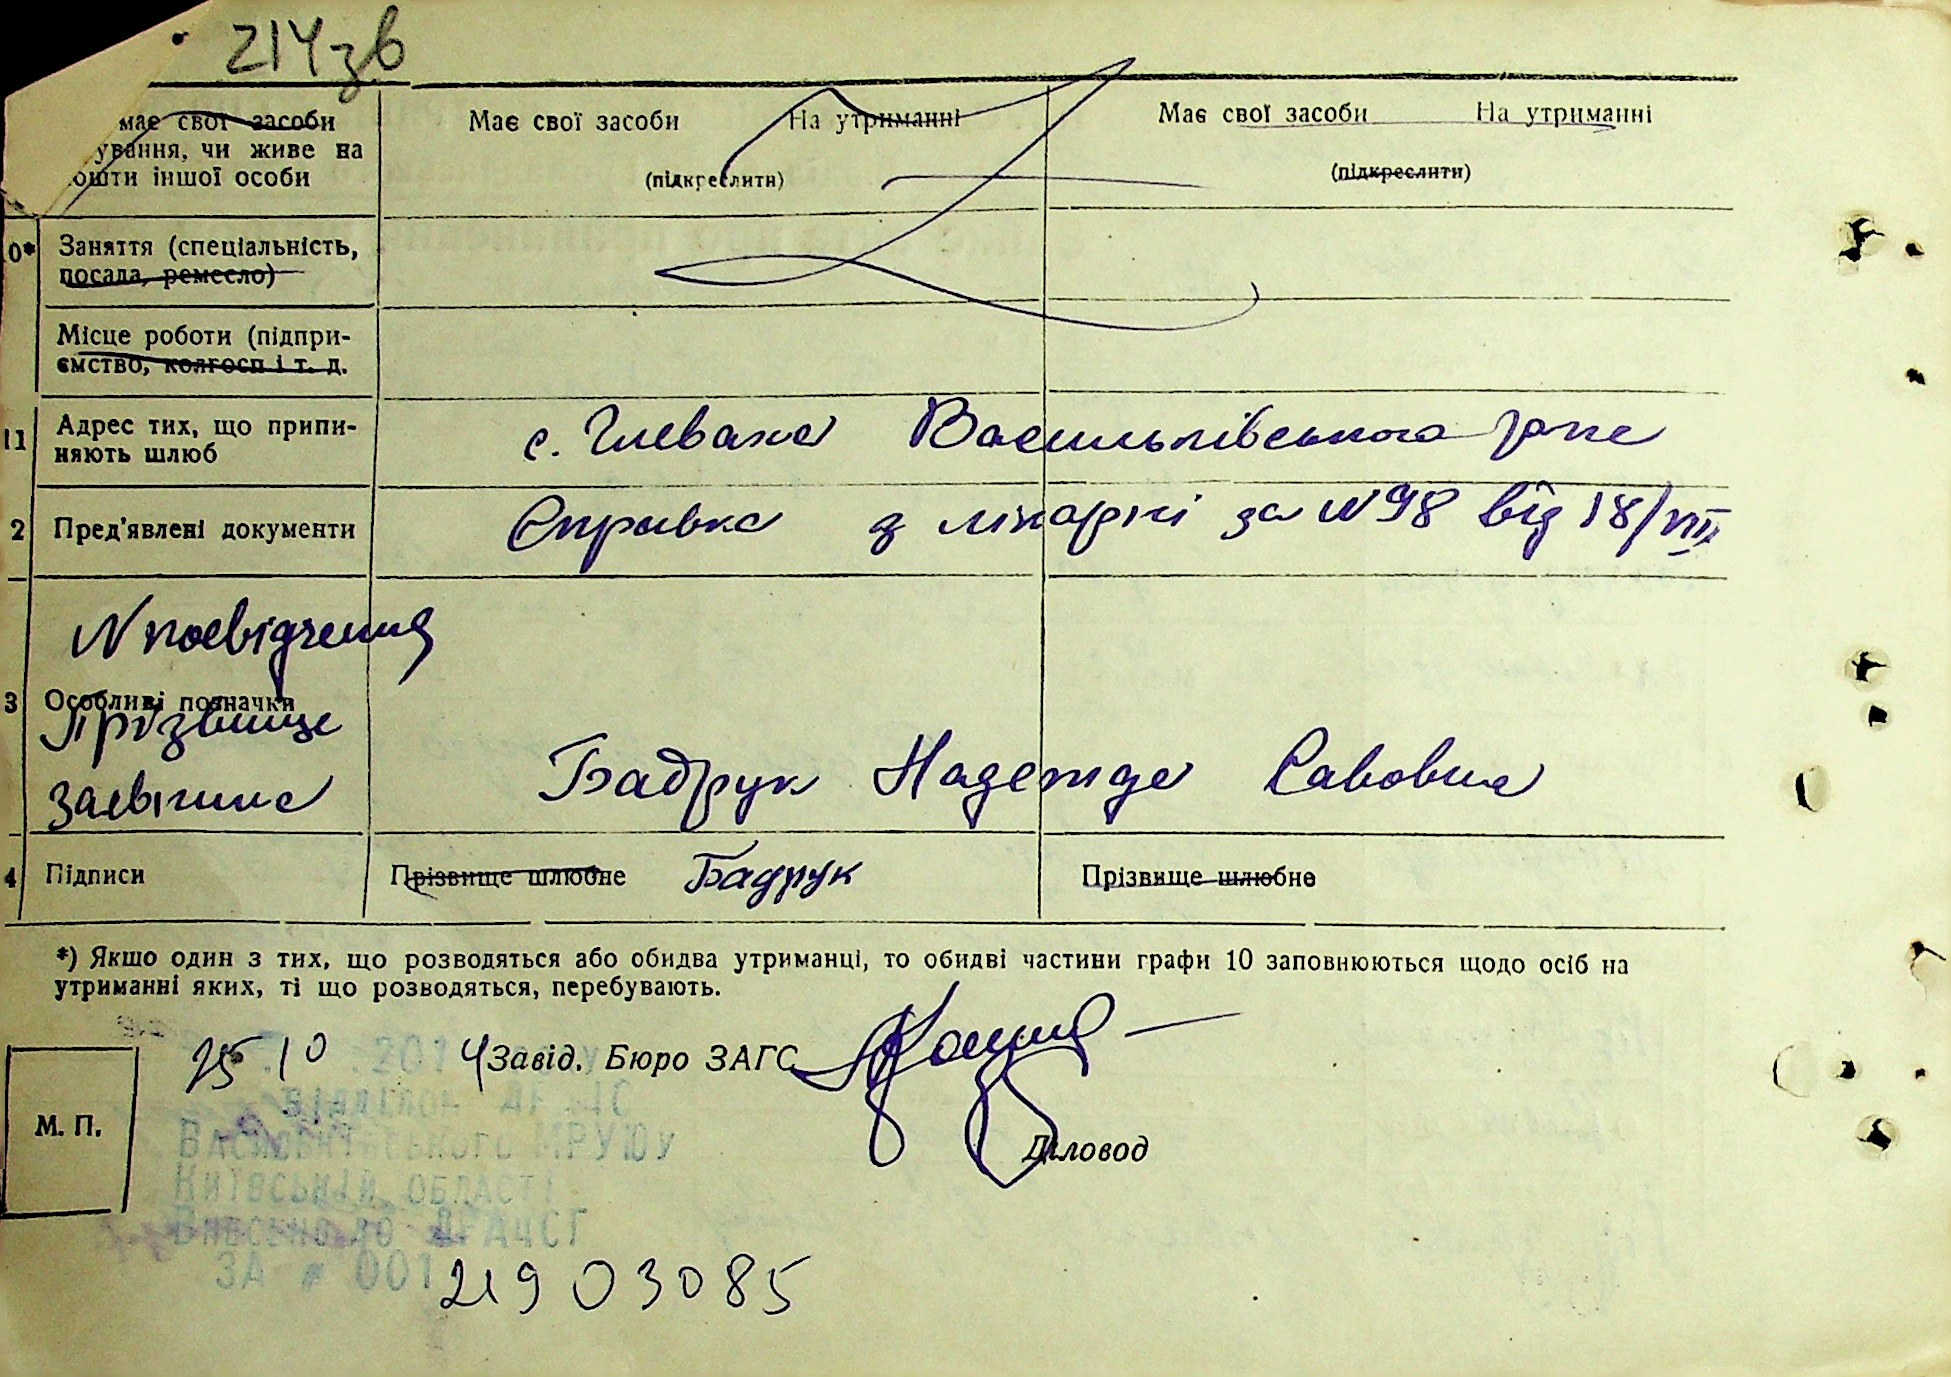 214зв
має свої засоби
ування, чи живе на
ошти іншої особи
Має свої засоби На утриманні
(підкреслити)
Має свої засоби На утриманні
(підкреслити)
0* Заняття (спеціальність,
посада, ремесло)
Місце роботи (підпри-
ємство, колгосп і т. д.
11 Адрес тих, що припи-
няють шлюб
с. Глеваха Васильківського
2 Пред'явлені документи
Справка з лікарні за N 98 від 18/VIII
N посвідчення
3 Особливі позначки
Прізвище
заявника
Бадрук Надежда Савовна
4 Підписи
Прізвище шлюбне Бадрук
Прізвище шлюбне
*) Якщо один з тих, що розводяться або обидва утриманці, то обидві частини графи 10 заповнюються щодо осіб на
утриманні яких, ті що розводяться, перебувають.
25 10 .201 4 Завід. Бюро ЗАГС
М. П.
Діловод
Васильківського МРУЮУ
Київській області
Внесено до ДРАЦСГ
за # 00121903085